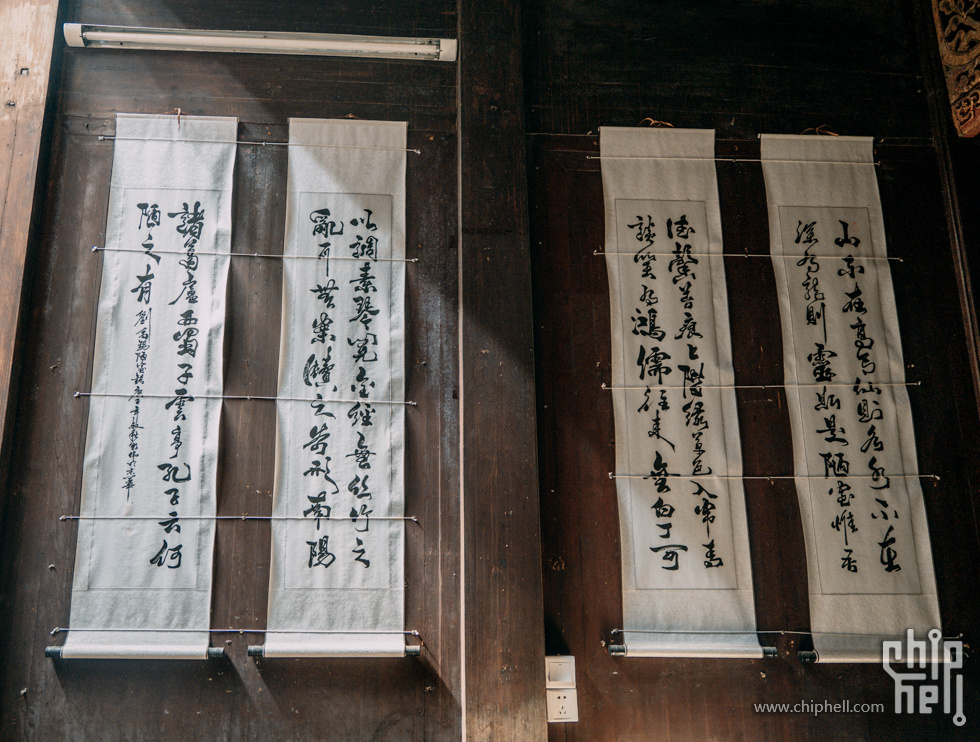 山不在高有仙則名水不在
深有龍則靈斯是陋室惟吾
德馨苔痕上階綠草色入簾青
談笑有鴻儒往來無白丁可
以調素琴閱金經無絲竹之
亂耳無案牘之勞形南陽
諸葛廬西蜀子雲亭孔子云何
陋之有 劉禹錫陋室銘
www.chiphell.com
chip
hell